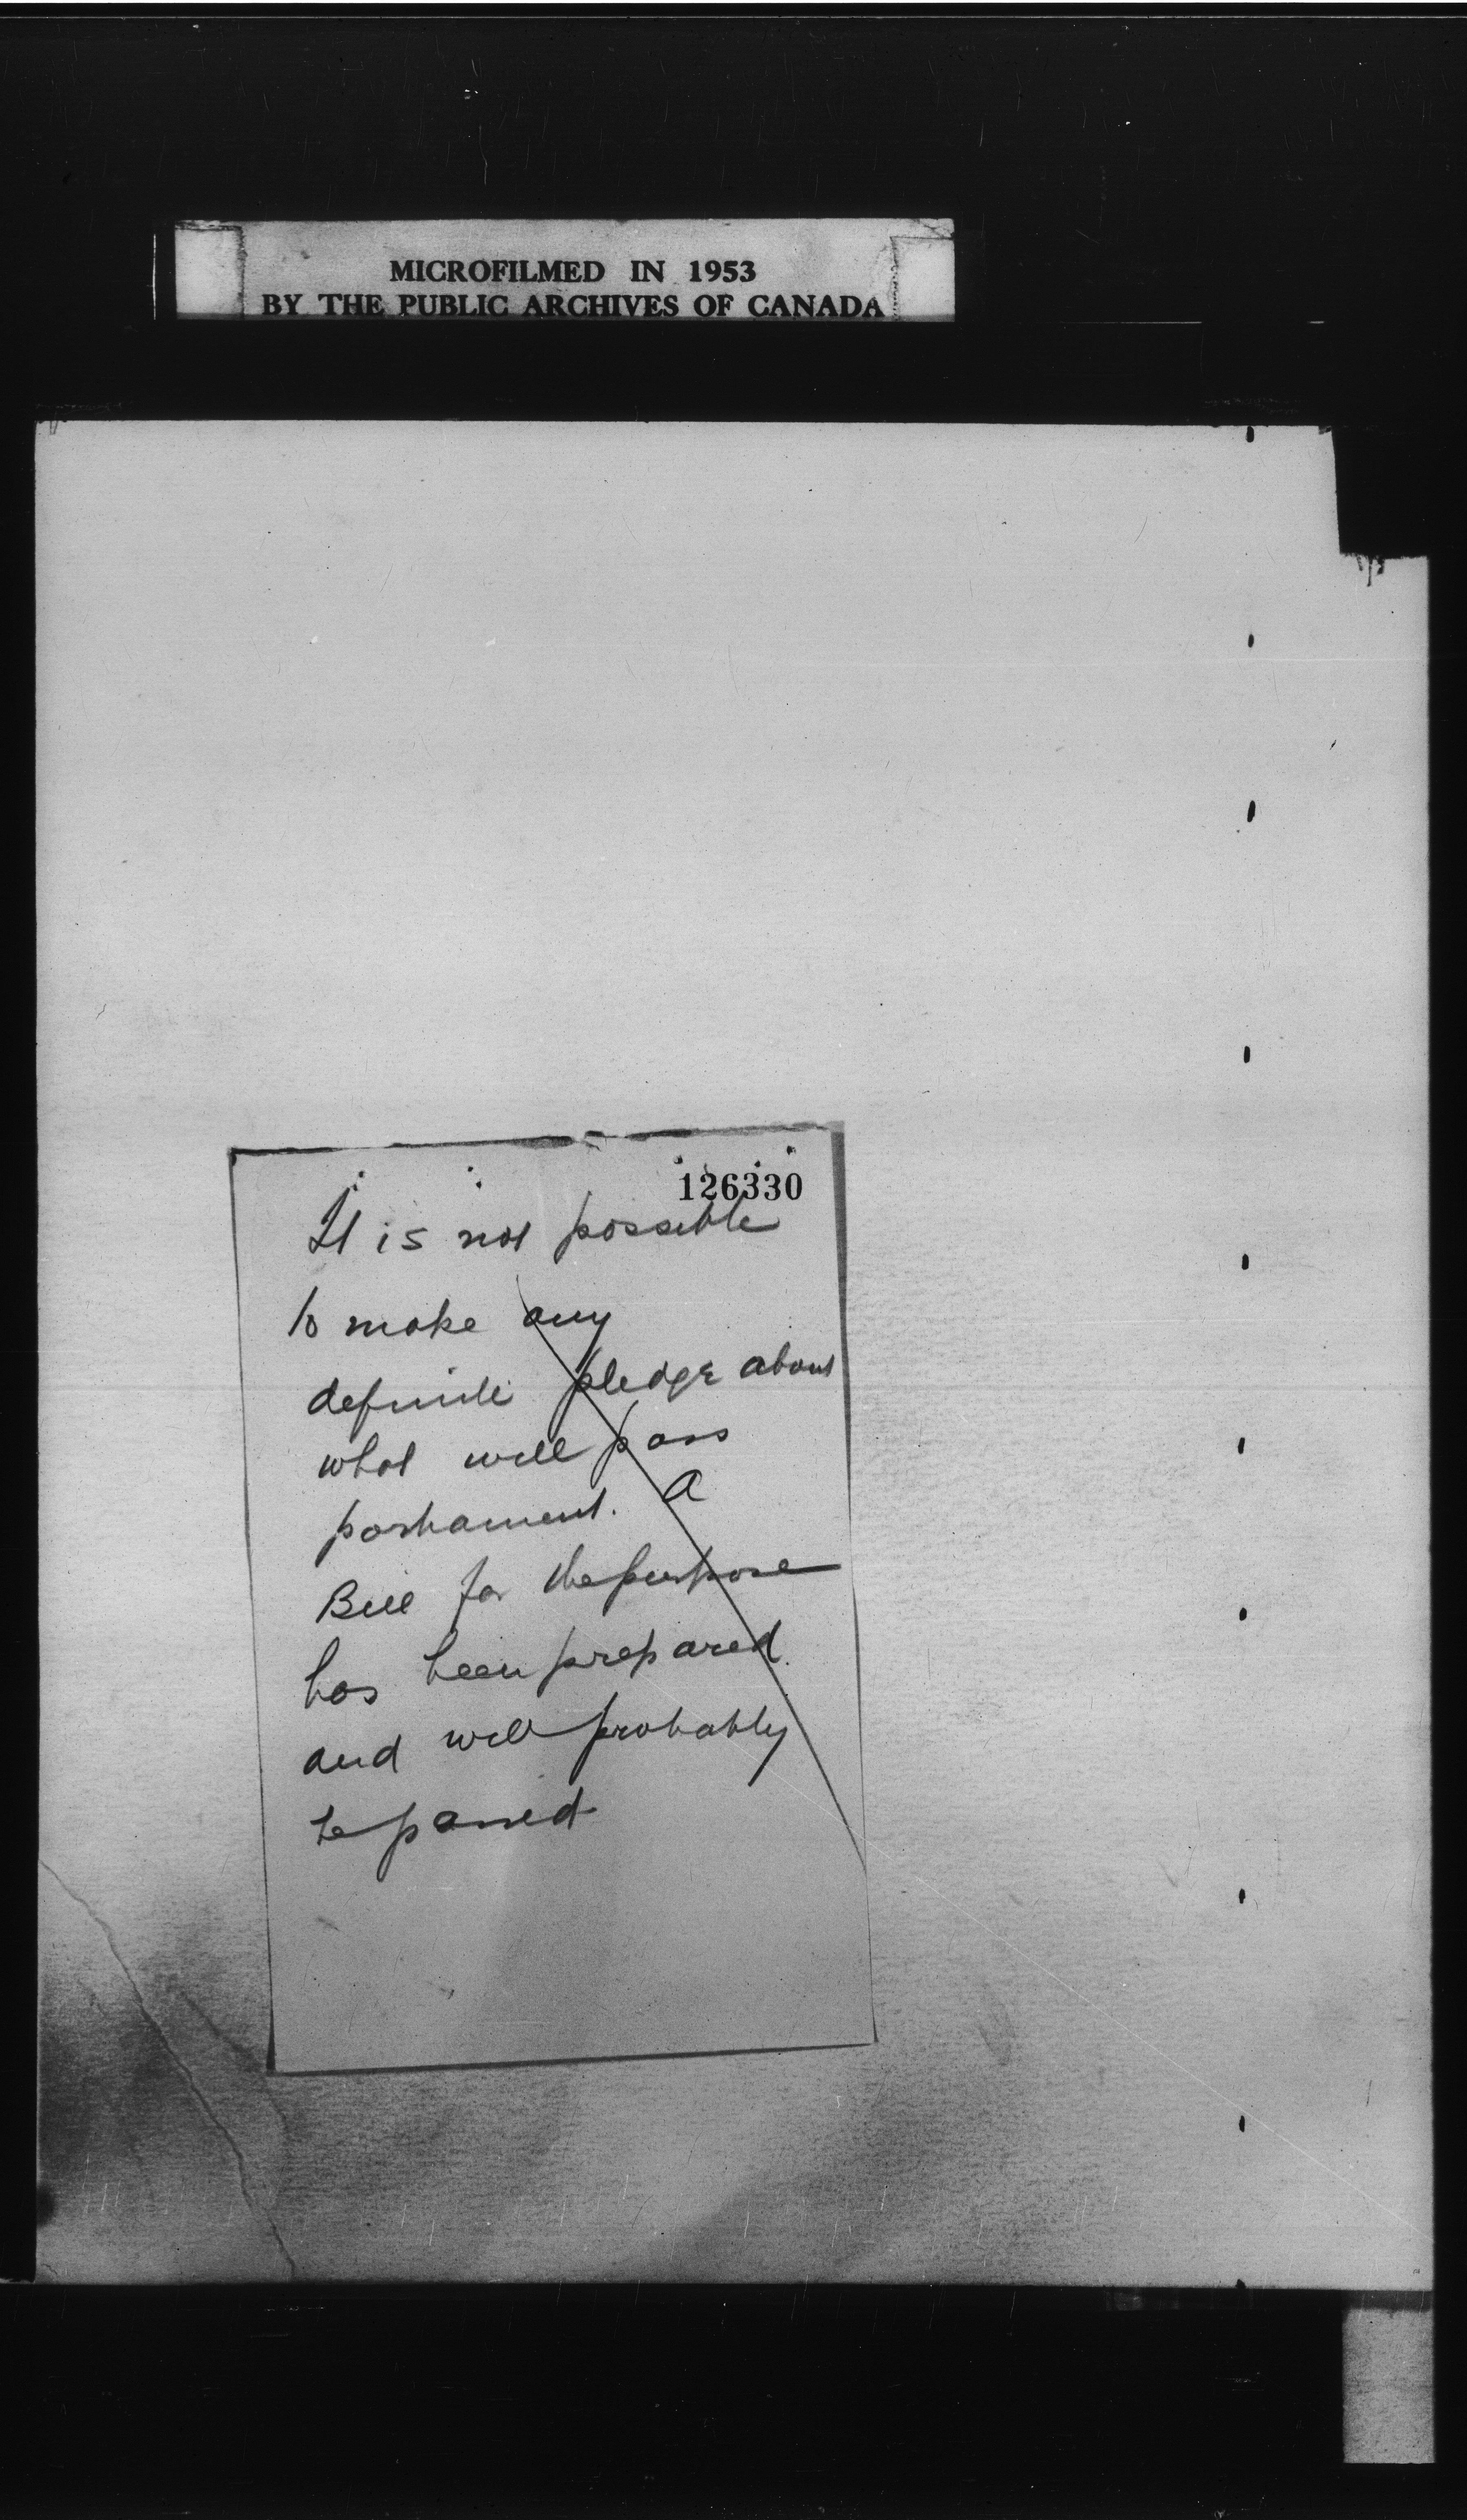 MICROFILMED IN 1953
BY THE PUBLIC ARCHIVES OF CANADA
126330
It is not possible
to make any
definite pledge about
what will pass
parliament. A
Bill for the purpose
has been prepared
and will probably
be passed